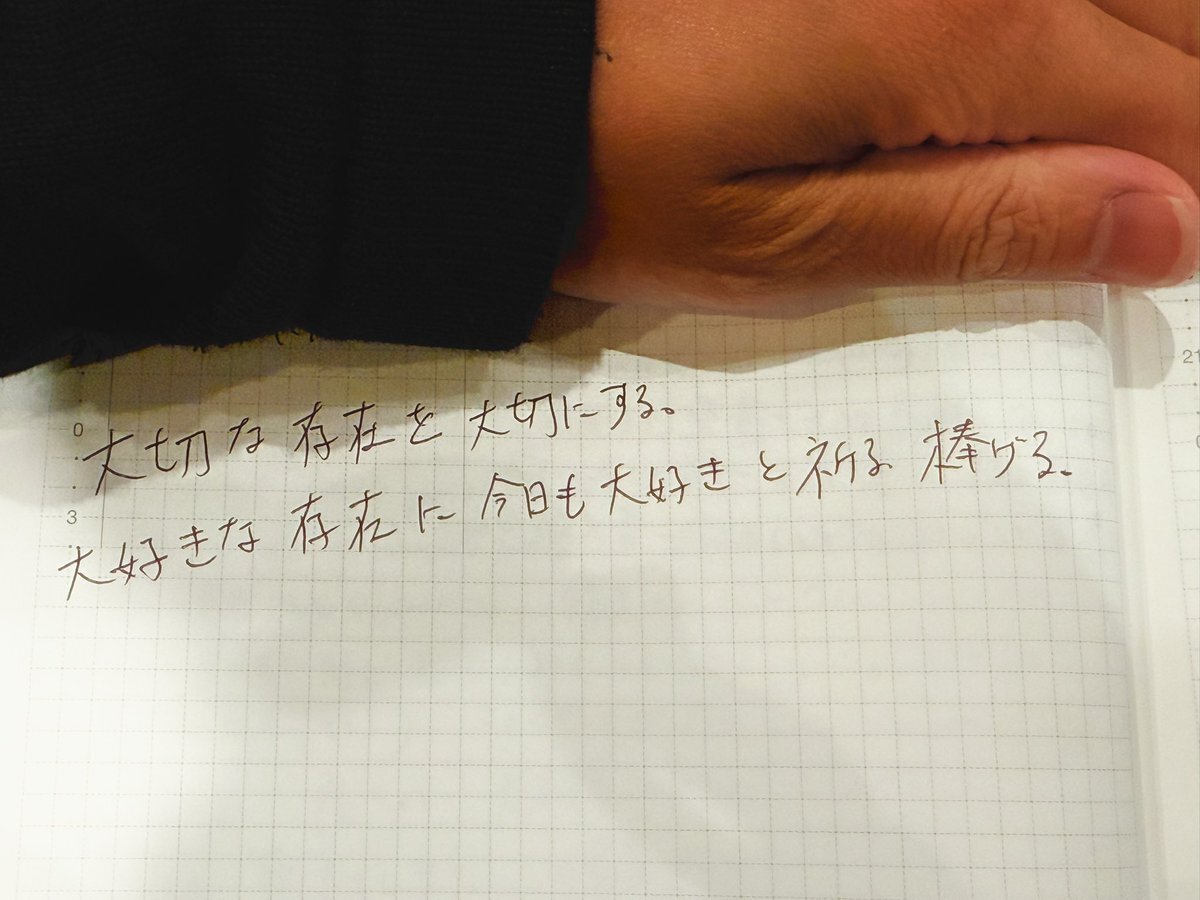 0
大切な存在を大切にする。
3
大好きな存在に今日も大好きと祈る 棒げる。
21